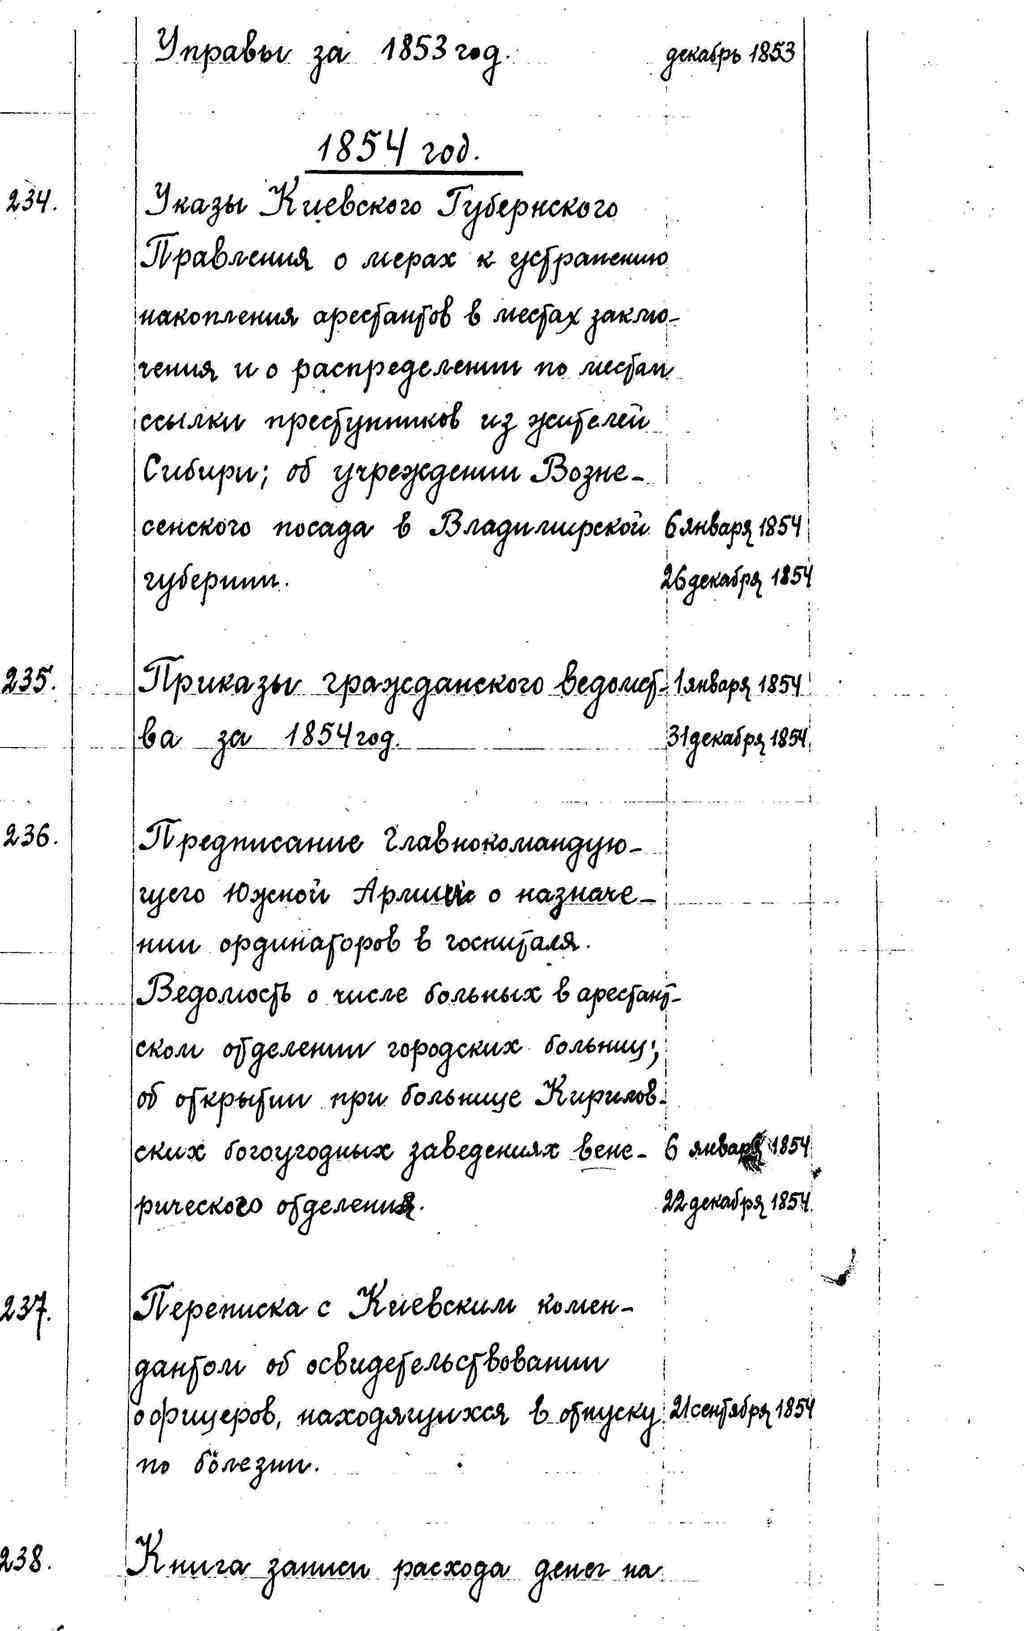 Управы за 1853 год. декабрь 1853
1854 год.
234. Указы Киевского Губернского
Правления о мерах к устранению
накопления арестантов в местах заклю-
чения и о распределении по местам
ссылки преступников из жителей
Сибири; об учреждении Возне-
сенского посада в Владимирской 6 января 1854
губернии. 26 декабря 1854
235. Приказы гражданского ведомст- 1 января 1854
ва за 1854 год. 31 декабря 1854
236. Предписание Главнокомандую-
щего Южной Армией о назначе-
нии ординаторов в госпиталя.
Ведомость о числе больных в арестант-
ском отделении городских больниц;
об открытии при больнице Кирилов-
ских богоугодных заведениях вене- 6 января 1854
рического отделения. 22 декабря 1854
237. Переписка с Киевским комен-
дантом об освидетельствовании
офицеров, находящихся в отпуску 21 сентября 1854
по болезни.
238. Книга записи расхода денег на